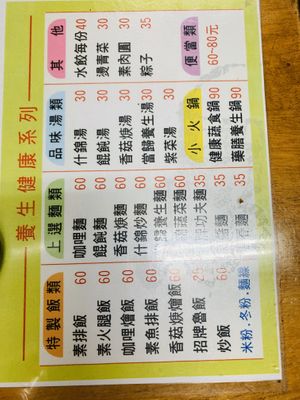 養生健康系列
特製飯類
素排飯 60
素火腿飯 60
咖哩燴飯 60
素魚排飯 60
香菇焿燴飯 60
招牌魯飯 25
炒飯 60
米粉.冬粉.麵線
上選麵類
咖哩麵 60
餛飩麵 60
香菇焿麵 60
什錦炒麵 60
養生麵 60
蔬菜麵 60
功夫麵 35
麵 35
麵 35
品味湯類
什錦湯 30
餛飩湯 30
香菇焿湯 30
當歸養生湯 30
紫菜湯 30
小火鍋
健康蔬食鍋 90
藥膳養生鍋 90
其他
水餃每份 40
燙青菜 30
素肉圓 30
粽子 35
便當類
60~80元